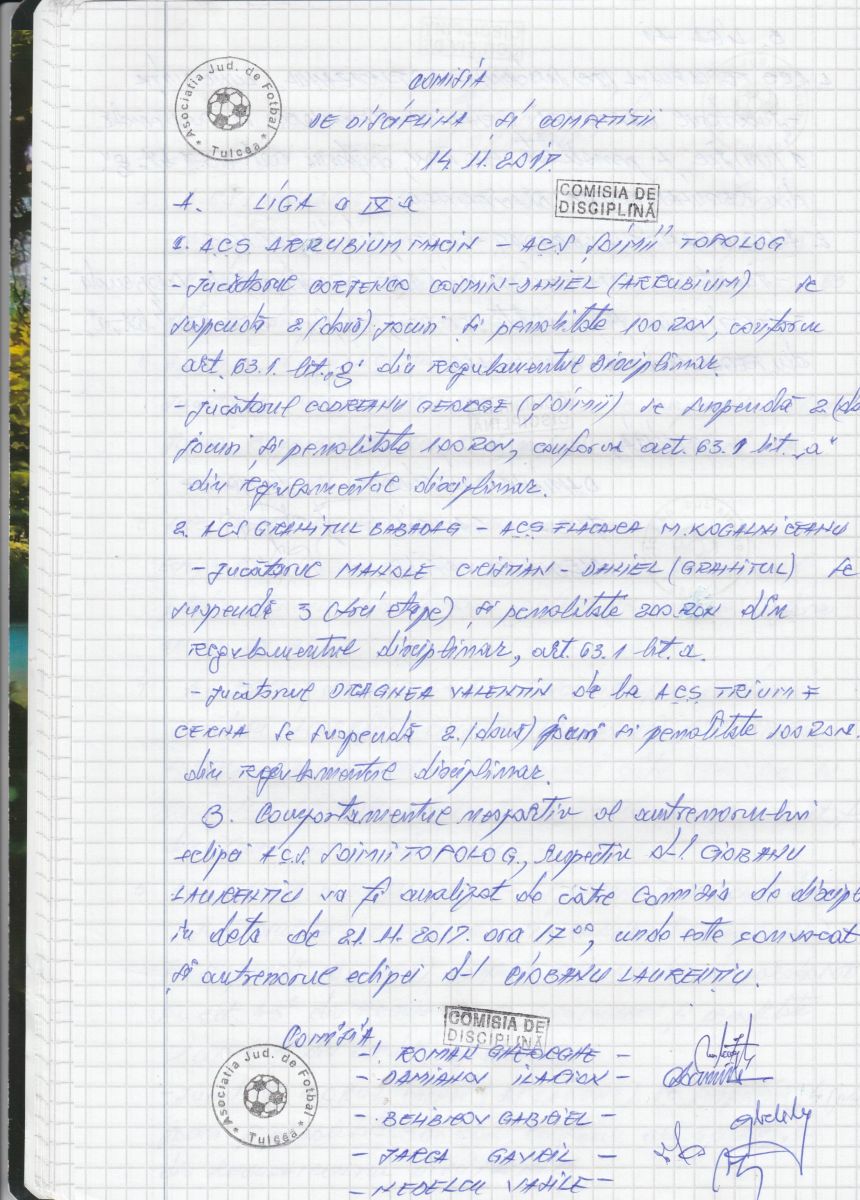 Asociatia Jud. de Fotbal * Tulcea *
COMISIA
DE DISCIPLINA SI COMPETITII
14.11.2017.
COMISIA DE
DISCIPLINĂ
A. LIGA a IV a
1. A.C.S. ARRUBIUM MACIN - A.C.S "ȘOIMII" TOPOLOG
- jucătorul COSMIN-DANIEL (ARRUBIUM) se
suspendă 2 (două) jocuri și penalitate 100 RON, conform
art. 63.1. lit. "g" din regulamentul disciplinar.
- jucătorul CODREANU GEORGE (Șoimii) se suspendă 2 (do
jocuri și penalitate 100 RON, conform art. 63.1 lit. "a"
din regulamentul disciplinar.
2. ACS GRANITUL BABADAG - A.C.S FLACARA M. KOGALNICEANU
- jucătorul MANOLE CRISTIAN - DANIEL (GRANITUL) se
suspendă 3 (trei etape) și penalitate 200 RON din
regulamentul disciplinar, art. 63.1 lit. a.
- jucătorul DRAGNEA VALENTIN de la A.C.S TRIUMF
CERNA se suspendă 2. (două) jocuri și penalitate 100 RON.
din regulamentul disciplinar.
3. Comportamentul nesportiv al antrenorului
echipei A.C.S. SOIMII TOPOLOG., respectiv d-l CIOBANU
LAURENTIU va fi analizat de către Comisia de discipl
în data de 21.11.2017. ora 17 00, unde este convocat
și antrenorul echipei d-l CIOBANU LAURENȚIU.
Comisia,
COMISIA DE
DISCIPLINĂ
Asociatia Jud. de Fotbal * Tulcea *
- ROMAN GHEORGHE -
- DAMIANOV ILARION -
- BELIBICOV GABRIEL -
- JARCA GAVRIL -
- NEDELCU VASILE -